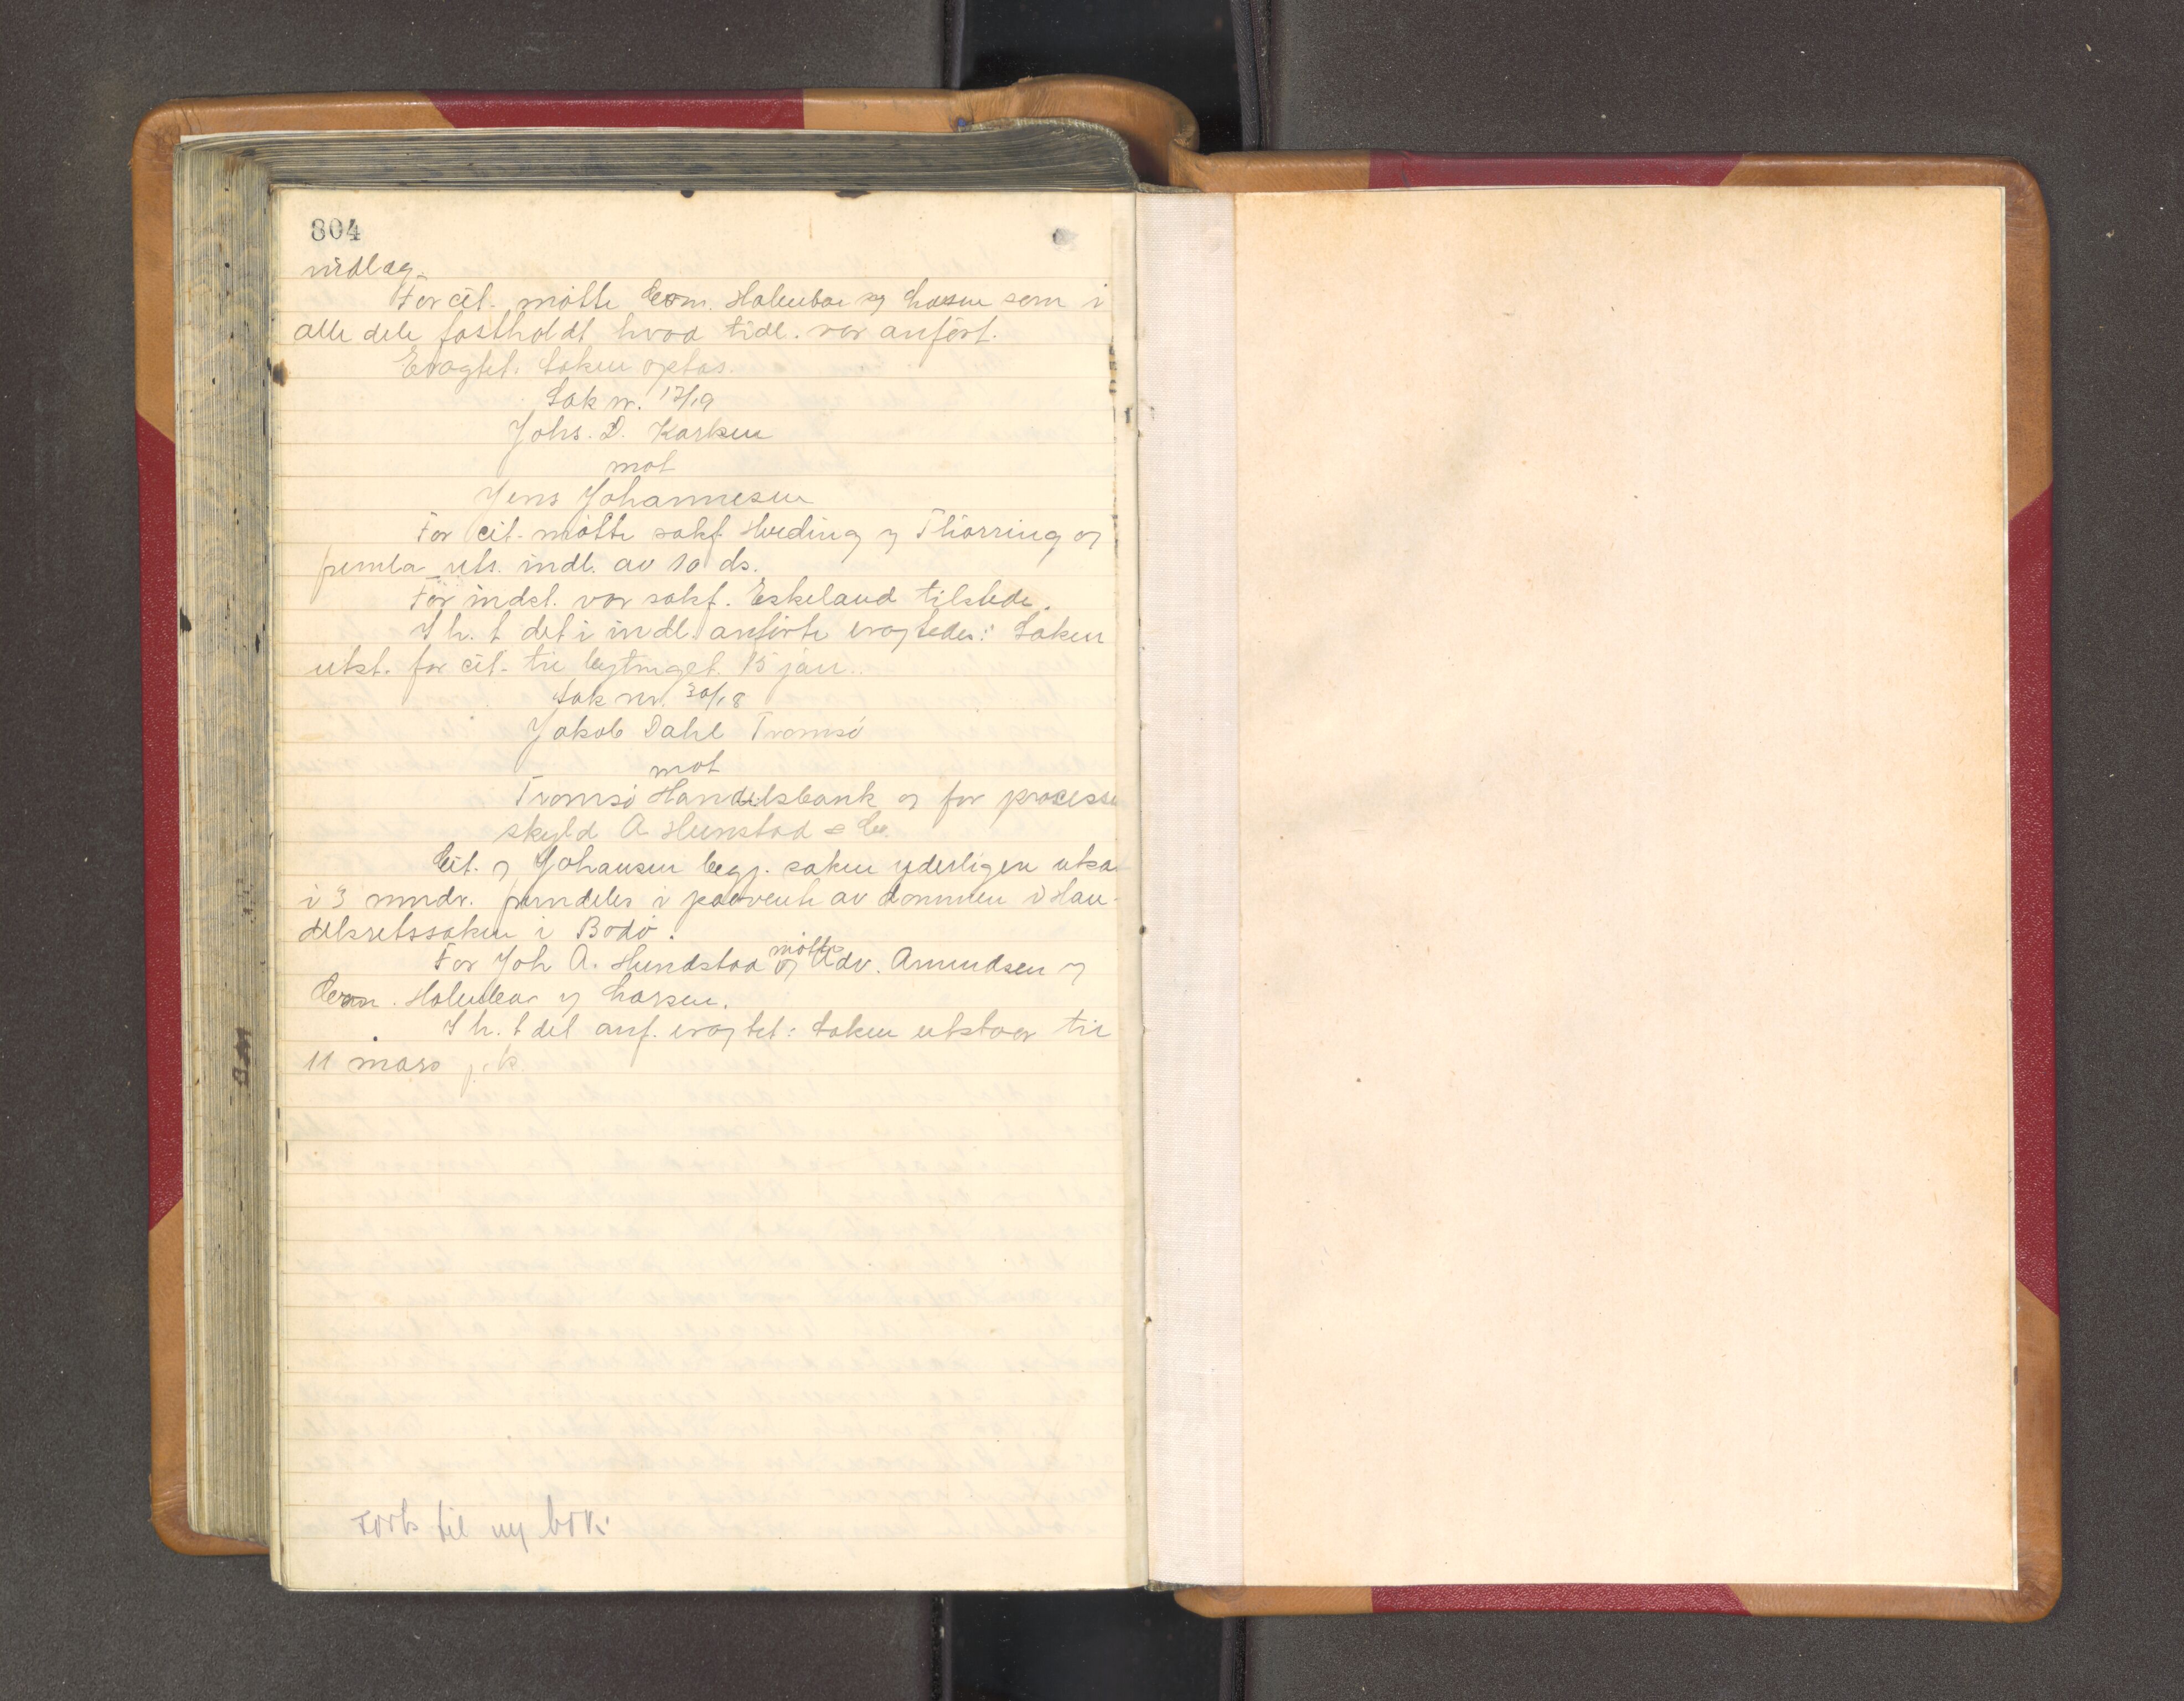 804
indlæg.
For cit. møtte Com. Holmboe og Larsen som i
alle dele fastholdt hvad tidl. var anført.
Eragtet: Saken optas.
Sak nr. 17/19
Johs. D. Karlsen
mot
Jens Johannesen
For cit. møtte sakf. Hveding og Thørring og
fremla uts. indl. av 10 ds.
For indst. var sakf. Eskeland tilstede.
I h. t. det i indl. anførte eragtedes: Saken
utst. for cit. til bytinget 15 jan..
Sak nr. 30/18
Jakob Dahl Tromsø
mot
Tromsø Handelsbank og for processens
skyld A Hunstad & Co.
Cit. og Johansen begj. saken yderligere utsat
i 3 mndr. fremdeles i paavente av dommen i Han-
delsretssaken i Bodø.
For Joh A. Hundstad møtte og Adv. Amundsen og
Com. Holmboe og Larsen.
I h. t. det anf. eragtet: Saken utstaar til
11 mars
Forts til ny bok